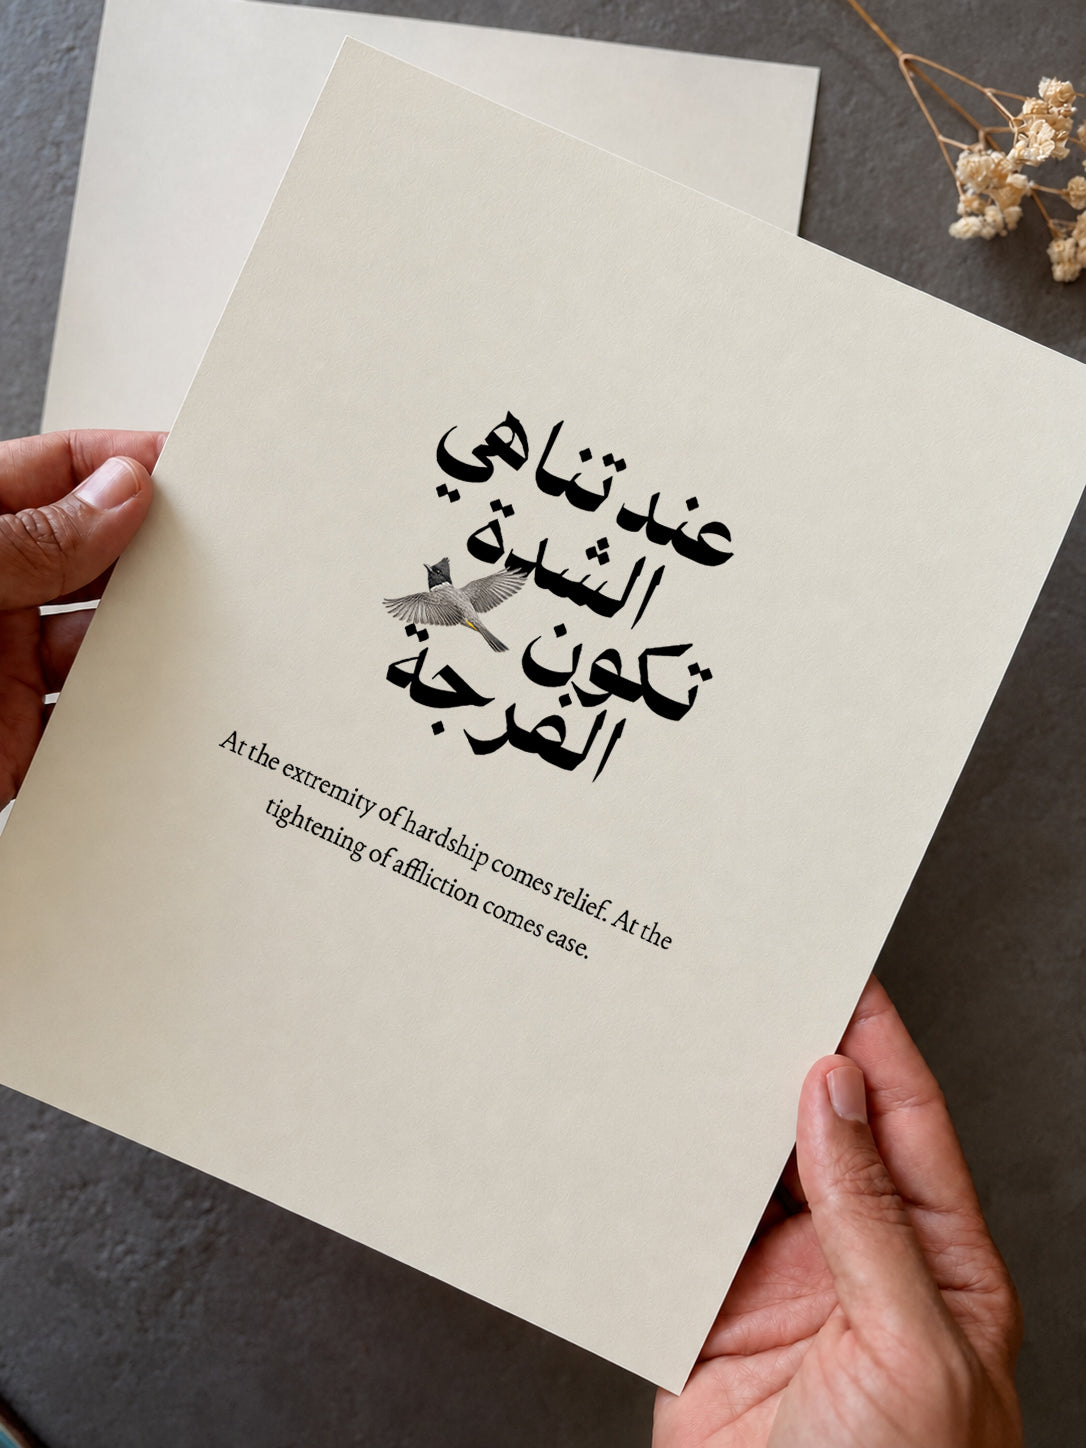 عند تناهي
الشدة
تكون
الفرجة
At the extremity of hardship comes relief. At the
tightening of affliction comes ease.